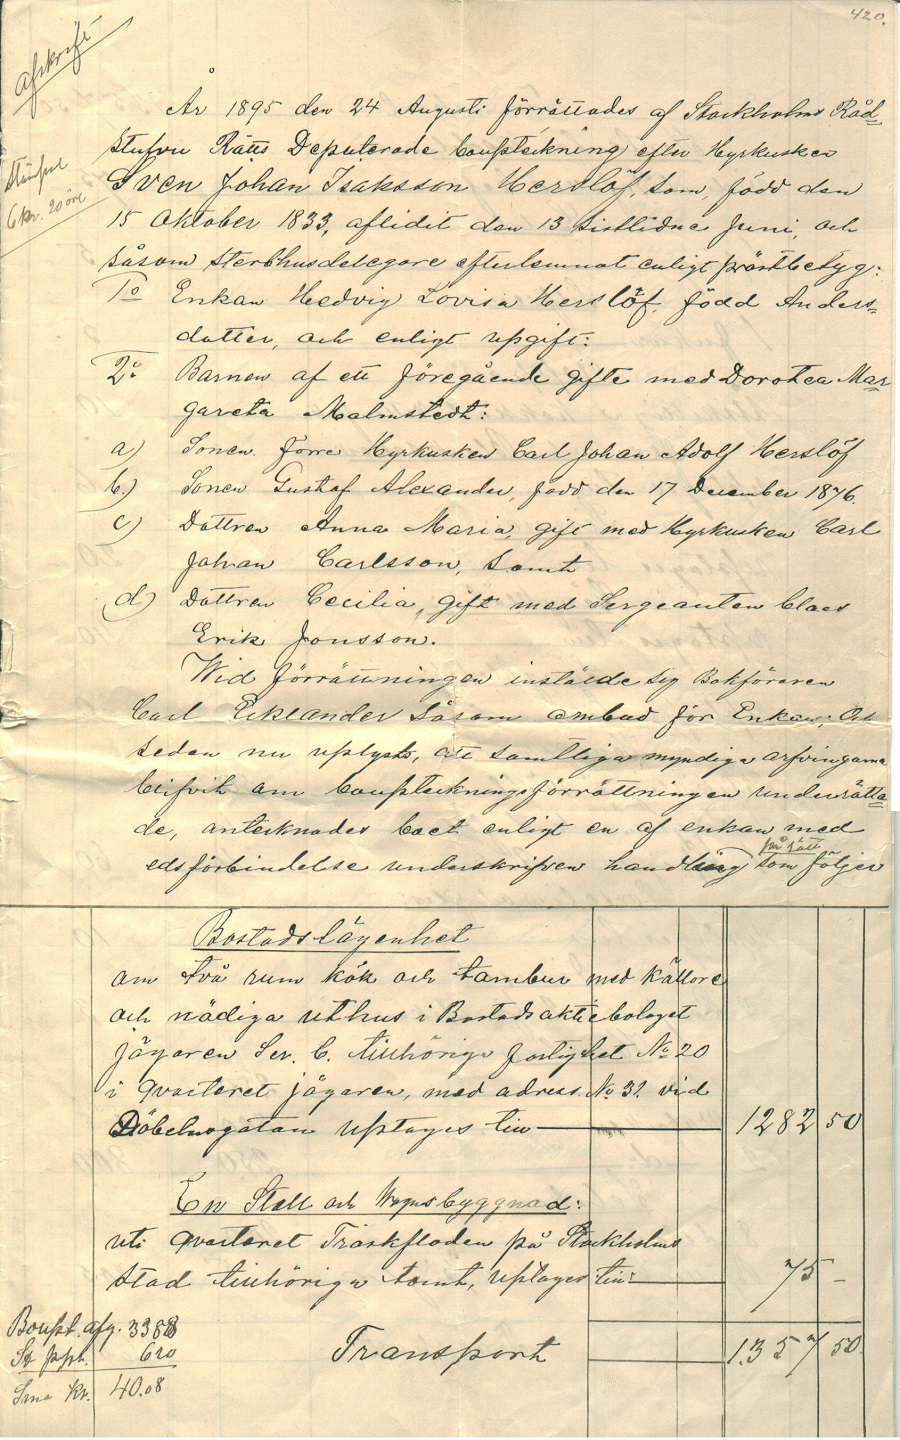 420.
Afskrift
Stämpel
6 kr. 20 öre
År 1895 den 24 Augusti förrättades af Stockholms Råd-
stufvu Rätts Deputerade bouppteckning efter Hyrkusken
Sven Johan Isaksson Herslöf, som, född den
15 Oktober 1833, aflidit den 13 sistlidne Juni, och
såsom sterbhusdelegare efterlemnat enligt prästbetyg:
1o Enkan Hedvig Lovisa Herslöf, född Anders-
dotter, och enligt upgift:
2o Barnen af ett föregående gifte med Dorotea Mar-
gareta Malmstedt:
a) Sonen Förre Hyrkusken Carl Johan Adolf Herslöf
b.) Sonen Gustaf Alexander, född den 17 December 1876.
c) Dottren Anna Maria, gift med Hyrkusken Carl
Johan Carlsson, Samt
d) Dottren Cecilia, gift med Sergeanten Claes
Erik Jonsson.
Wid förrättningen instälde sig Bokföraren
Carl Eklander såsom ombud för Enkan; Och
sedan nu uplysts, att samtliga myndiga arfvingarna
blifvit om bouppteckningsförrättningen underrätta-
de, antecknades boet enligt en af enkan med
edsförbindelse underskrifven handling som följer
Bostadslägenhet
om två rum kök och tambur med källare
och nödiga uthus i Bostadsaktiebolaget
Jägaren Ser. C. tillhöriga fastighet No 20
i qvarteret jägaren, med adress. No 31. vid
Döbelnsgatan uptages till 1282 50
En Stall och Wagnsbyggnad:
uti qvarteret Träskfloden på Stockholms
stad tillhöriga tomt, uptages till: 75 -
Transport 1357 50.
Boupt. afg. 33 88
St ppr. 6 20
Sma Kr. 40.08